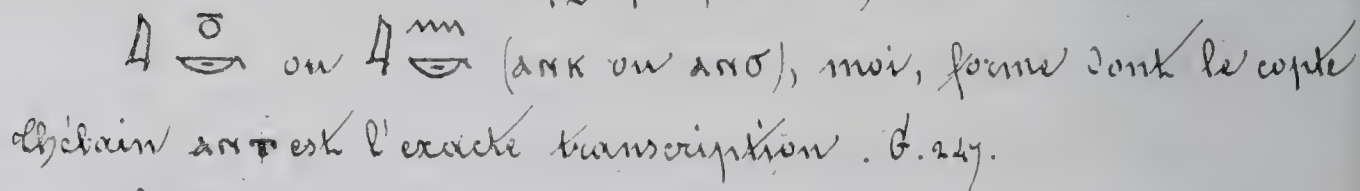 ou (ⲁⲛⲕ ou ⲁⲛϭ), moi, forme dont le copte
thébain ⲁⲛⲧ est l'exacte transcription. G. 247.